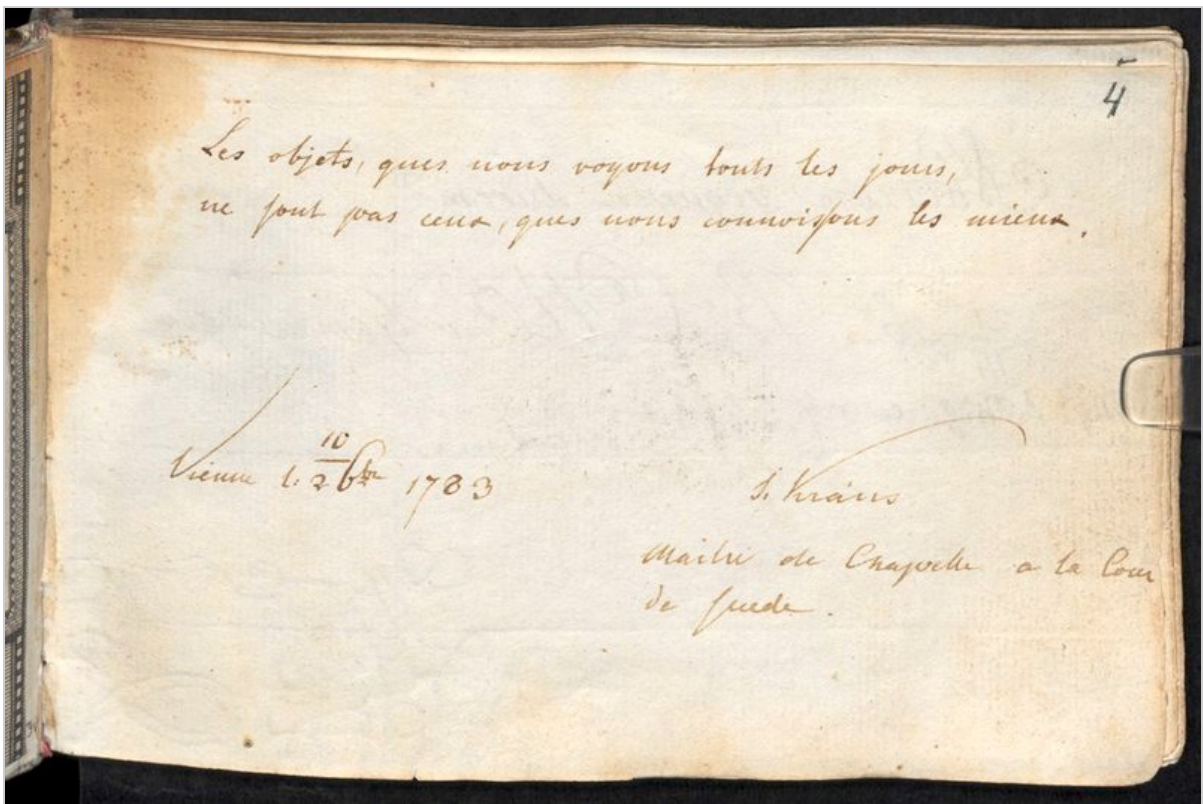 4
Les objets, ques nous voyons touts les jours,
ne sont pas ceux, ques nous connoissons les mieux.
Vienne l. 10/2 6br 1783
J. Kraus
Maitre de Chapelle a la Cour
de Suede.